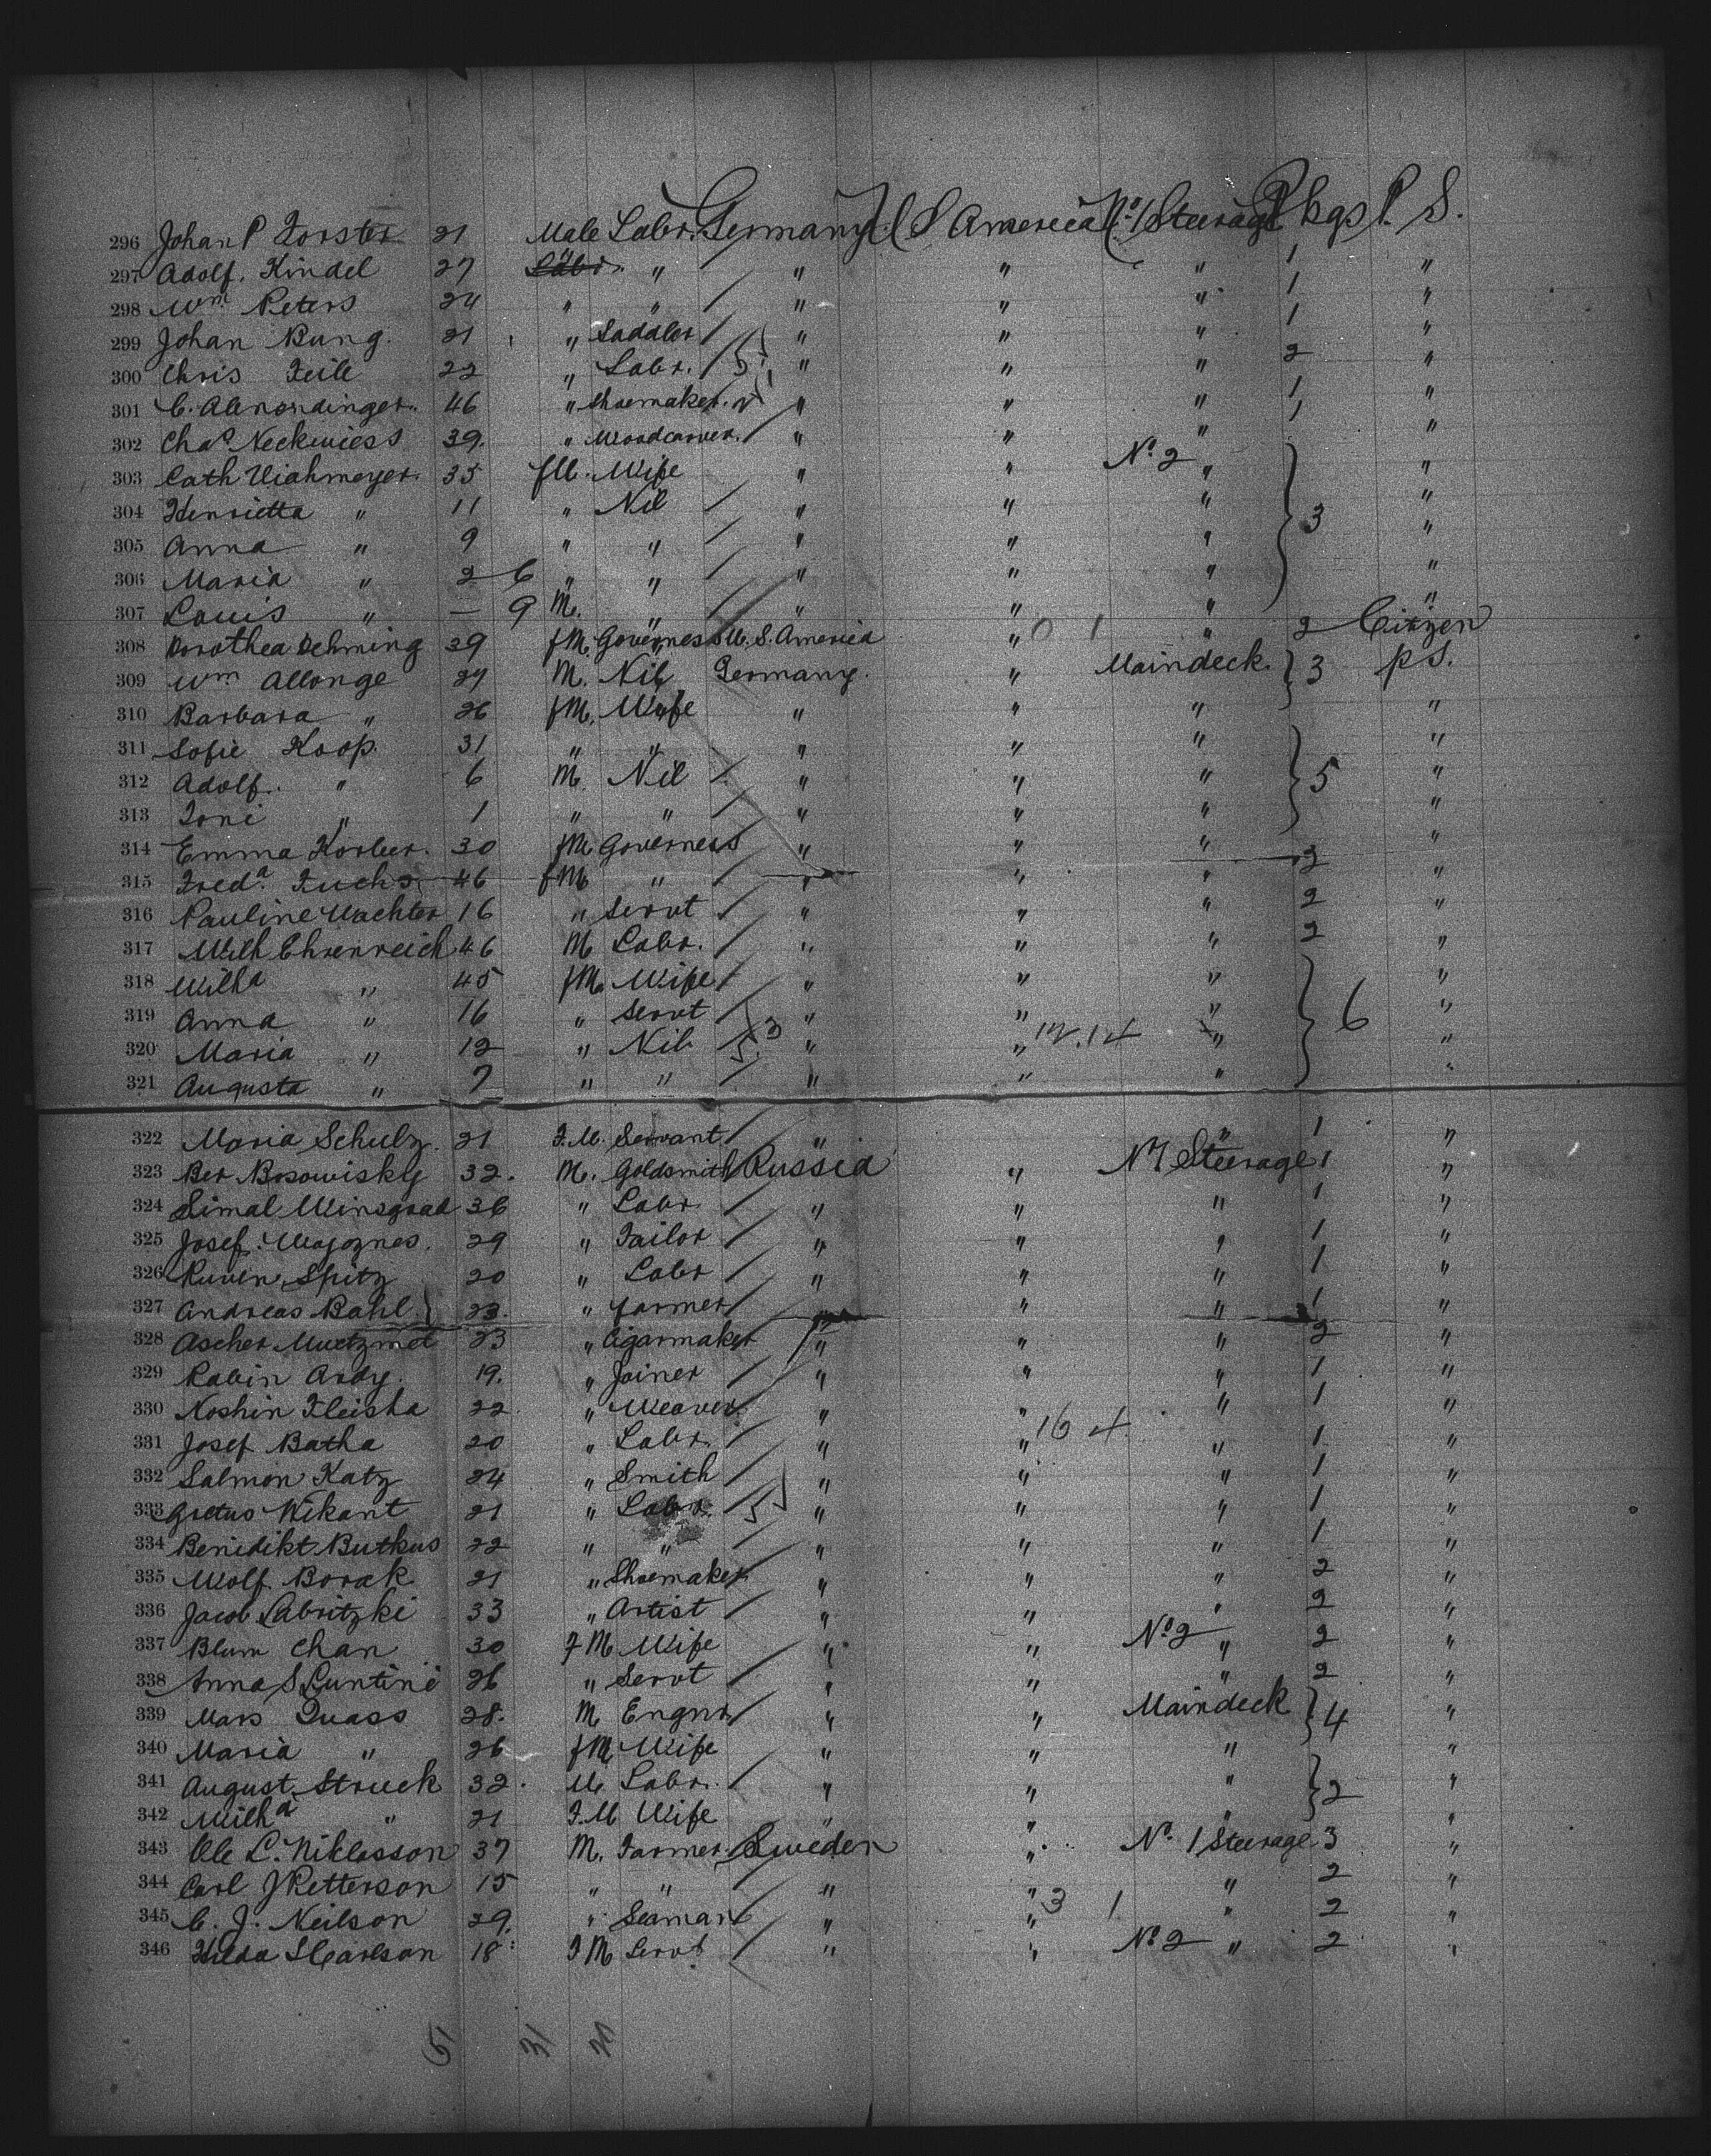 296 Johan P Forster 21 Male Labr. Germany U S America No 1 Steerage Pkgs P. S.
297 Adolf. Kindel 27 Labr. " " " " 1 "
298 Wm Peters 24 " " " " " 1 "
299 Johan Bung. 21 " Saddler " " " 1 "
300 Chris Feile 22 " Labr. " " " 2 "
301 C. Almondinger. 46 " Shoemaker. " " " 1 "
302 Chas Neckwiess 39. " Woodcarver. " " " 1 "
303 Cath Viahmeyer. 35 fM. Wife " " No. 2 " "
304 Henrietta " 11 " Nil " " " 3 "
305 Anna " 9 " " " " " "
306 Maria " 2 6 " " " " " "
307 Louis " — 9 M. " " " " "
308 Dorothea Dehming 39 fM. Governess U. S. America " 0 1 " 2 Citizen
309 Wm Allonge 27 M. Nil Germany. " Maindeck. 3 P S.
310 Barbara " 26 fM. Wife " " " "
311 Sofie Koop. 31 " " " " " "
312 Adolf. " 6 M. Nil " " " 5 "
313 Toni " 1 " " " " " "
314 Emma Korber. 30 fM Governess " " " 2 "
315 Freda. Fuchs 46 fM " " " " 2 "
316 Pauline Wachter 16 " Servt " " " 2 "
317 Wilh Ehrenreich 46 M Labr. " " " "
318 Wilha " 45 fM. Wife " " " "
319 Anna " 16 " Servt " " " 6 "
320 Maria " 12 " Nil " " 12.14 " "
321 Augusta " 7 " " " " " "
322 Maria Schulz. 21 F.M. Servant " " 1 "
323 Ber Bosowisky 32. M. Goldsmith Russia " No 1 Steerage 1 "
324 Simal Winsgrad 36 " Labr. " " " 1 "
325 Josef. Wajoznes. 29 " Tailor " " " 1 "
326 Ruven Spitz 20 " Labr " " " 1 "
327 Andreas Bahl. 23. " farmer " " " 1 "
328 Ascher Muetzmet 23 " Cigarmaker " " " 2 "
329 Rabin Ardy. 19. " Joiner " " " 1 "
330 Noshin Fleisha 22. " Weaver. " " " 1 "
331 Josef Batha 20 " Labr. " " 16 4. " 1 "
332 Salmon Katz 24 " Smith " " " 1 "
333 Gretus Wikant 21 " Labr. " " " 1 "
334 Benidikt Butkus 22 " " " " " 1 "
335 Wolf. Borak 21 " Shoemaker " " " 2 "
336 Jacob Labritzki 33 " Artist " " " 2 "
337 Blum Chan 30 F M Wife " " No 2 " 2 "
338 Anna S Luntini 26 " Servt " " " 2 "
339 Mars Quass 28. M Engnr " " Maindeck 4 "
340 Maria " 26 fM Wife " " " "
341 August. Struck 32. M Labr. " " " 2 "
342 Wilha " 21 F.M Wife " " " "
343 Ole L. Niklasson 37 M. Farmer Sweden " No. 1 Steerage 3 "
344 Carl J Petterson 15 " " " " " 2 "
345 C. J. Neilson 29. " Seaman " " 3 1 " 2 "
346 Hilda S Carlson 18 F M Servt " " No 2 " 2 "
51 31 21